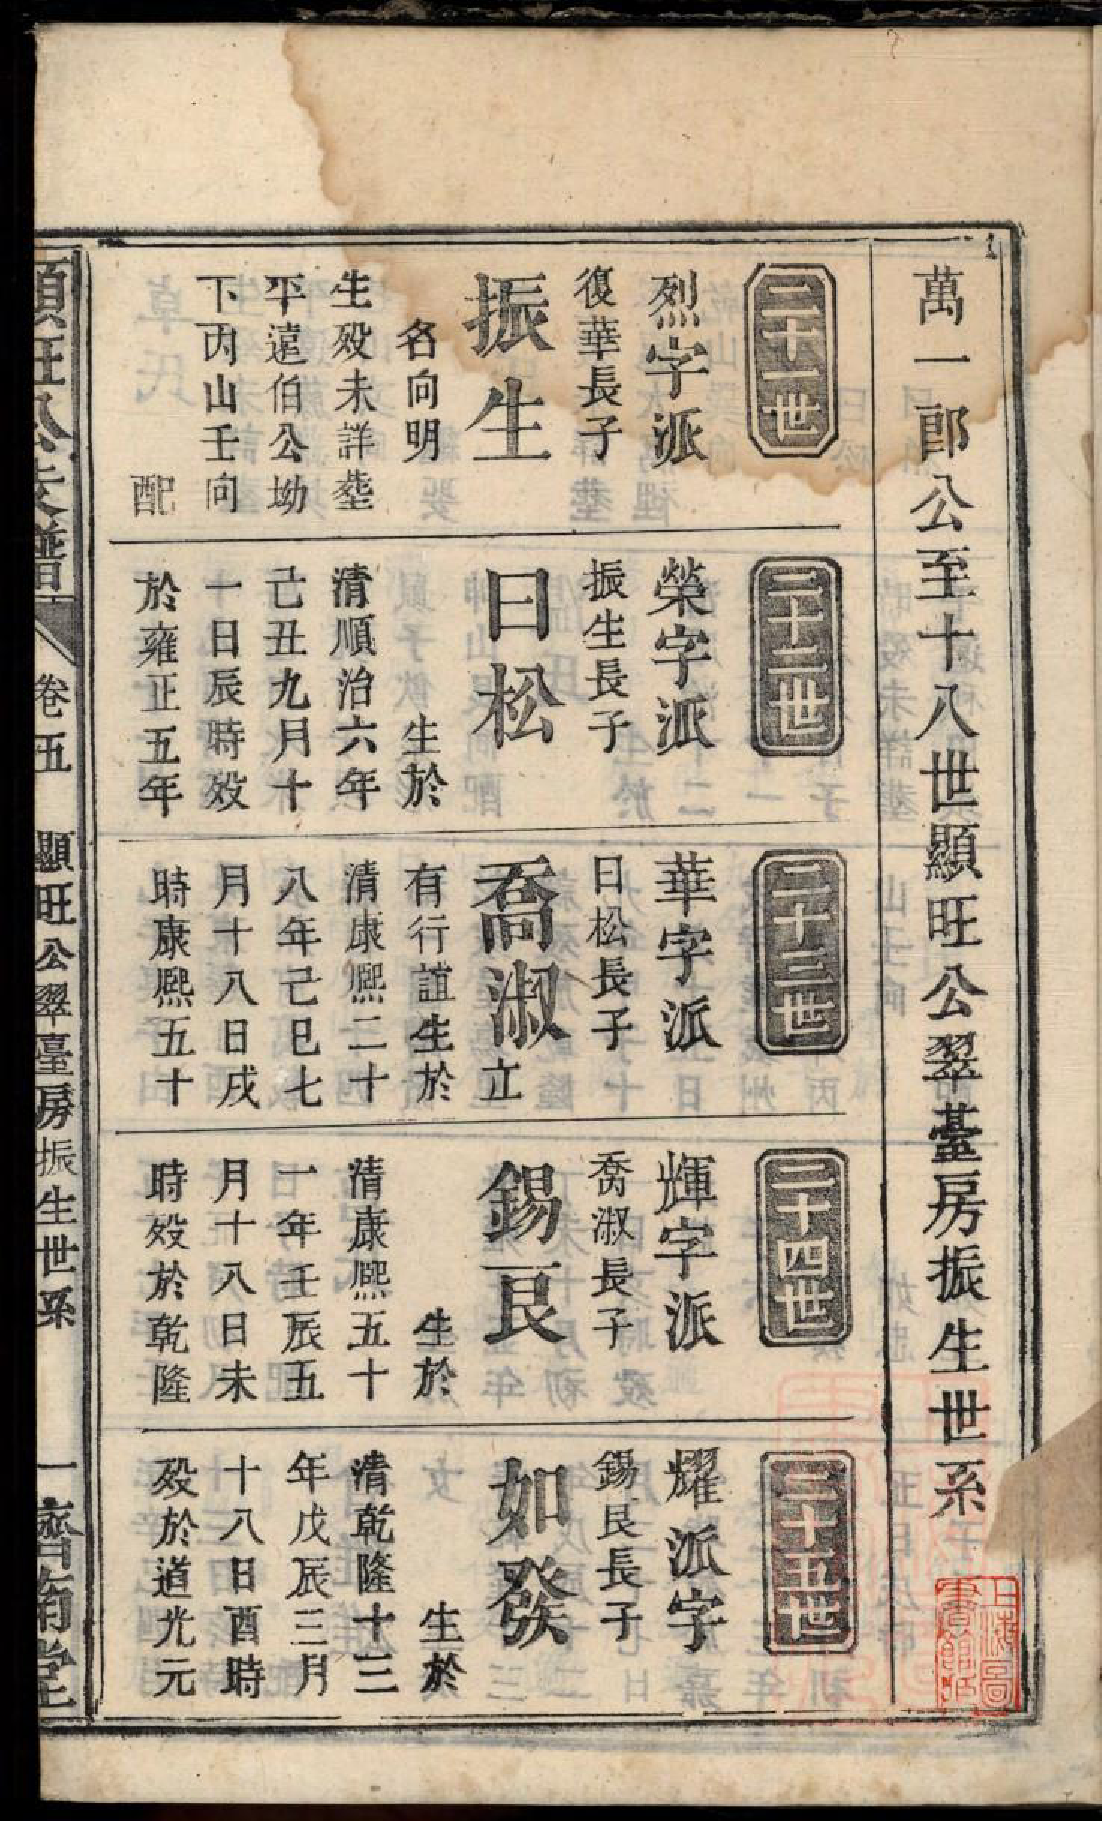 萬一郎公至十八世顯旺公翠臺房振生世系
二十一世
烈字派
復華長子
振生
名向明
生歿未詳塟
平遠伯公坳
下丙山壬向
配
二十二世
榮字派
振生長子
日松
生於
清順治六年
己丑九月十
一日辰時歿
於雍正五年
二十三世
華字派
日松長子
喬淑立
有行誼生於
清康熙二十
八年己巳七
月十八日戌
時康熙五十
二十四世
輝字派
喬淑長子
錫艮
生於
清康熙五十
一年壬辰五
月十八日未
時歿於乾隆
二十五世
耀派字
錫艮長子
如發
生於
清乾隆十三
年戊辰三月
十八日酉時
歿於道光元
卷五
顯旺公翠臺房振生世系
一濟南堂
上海圖書館藏